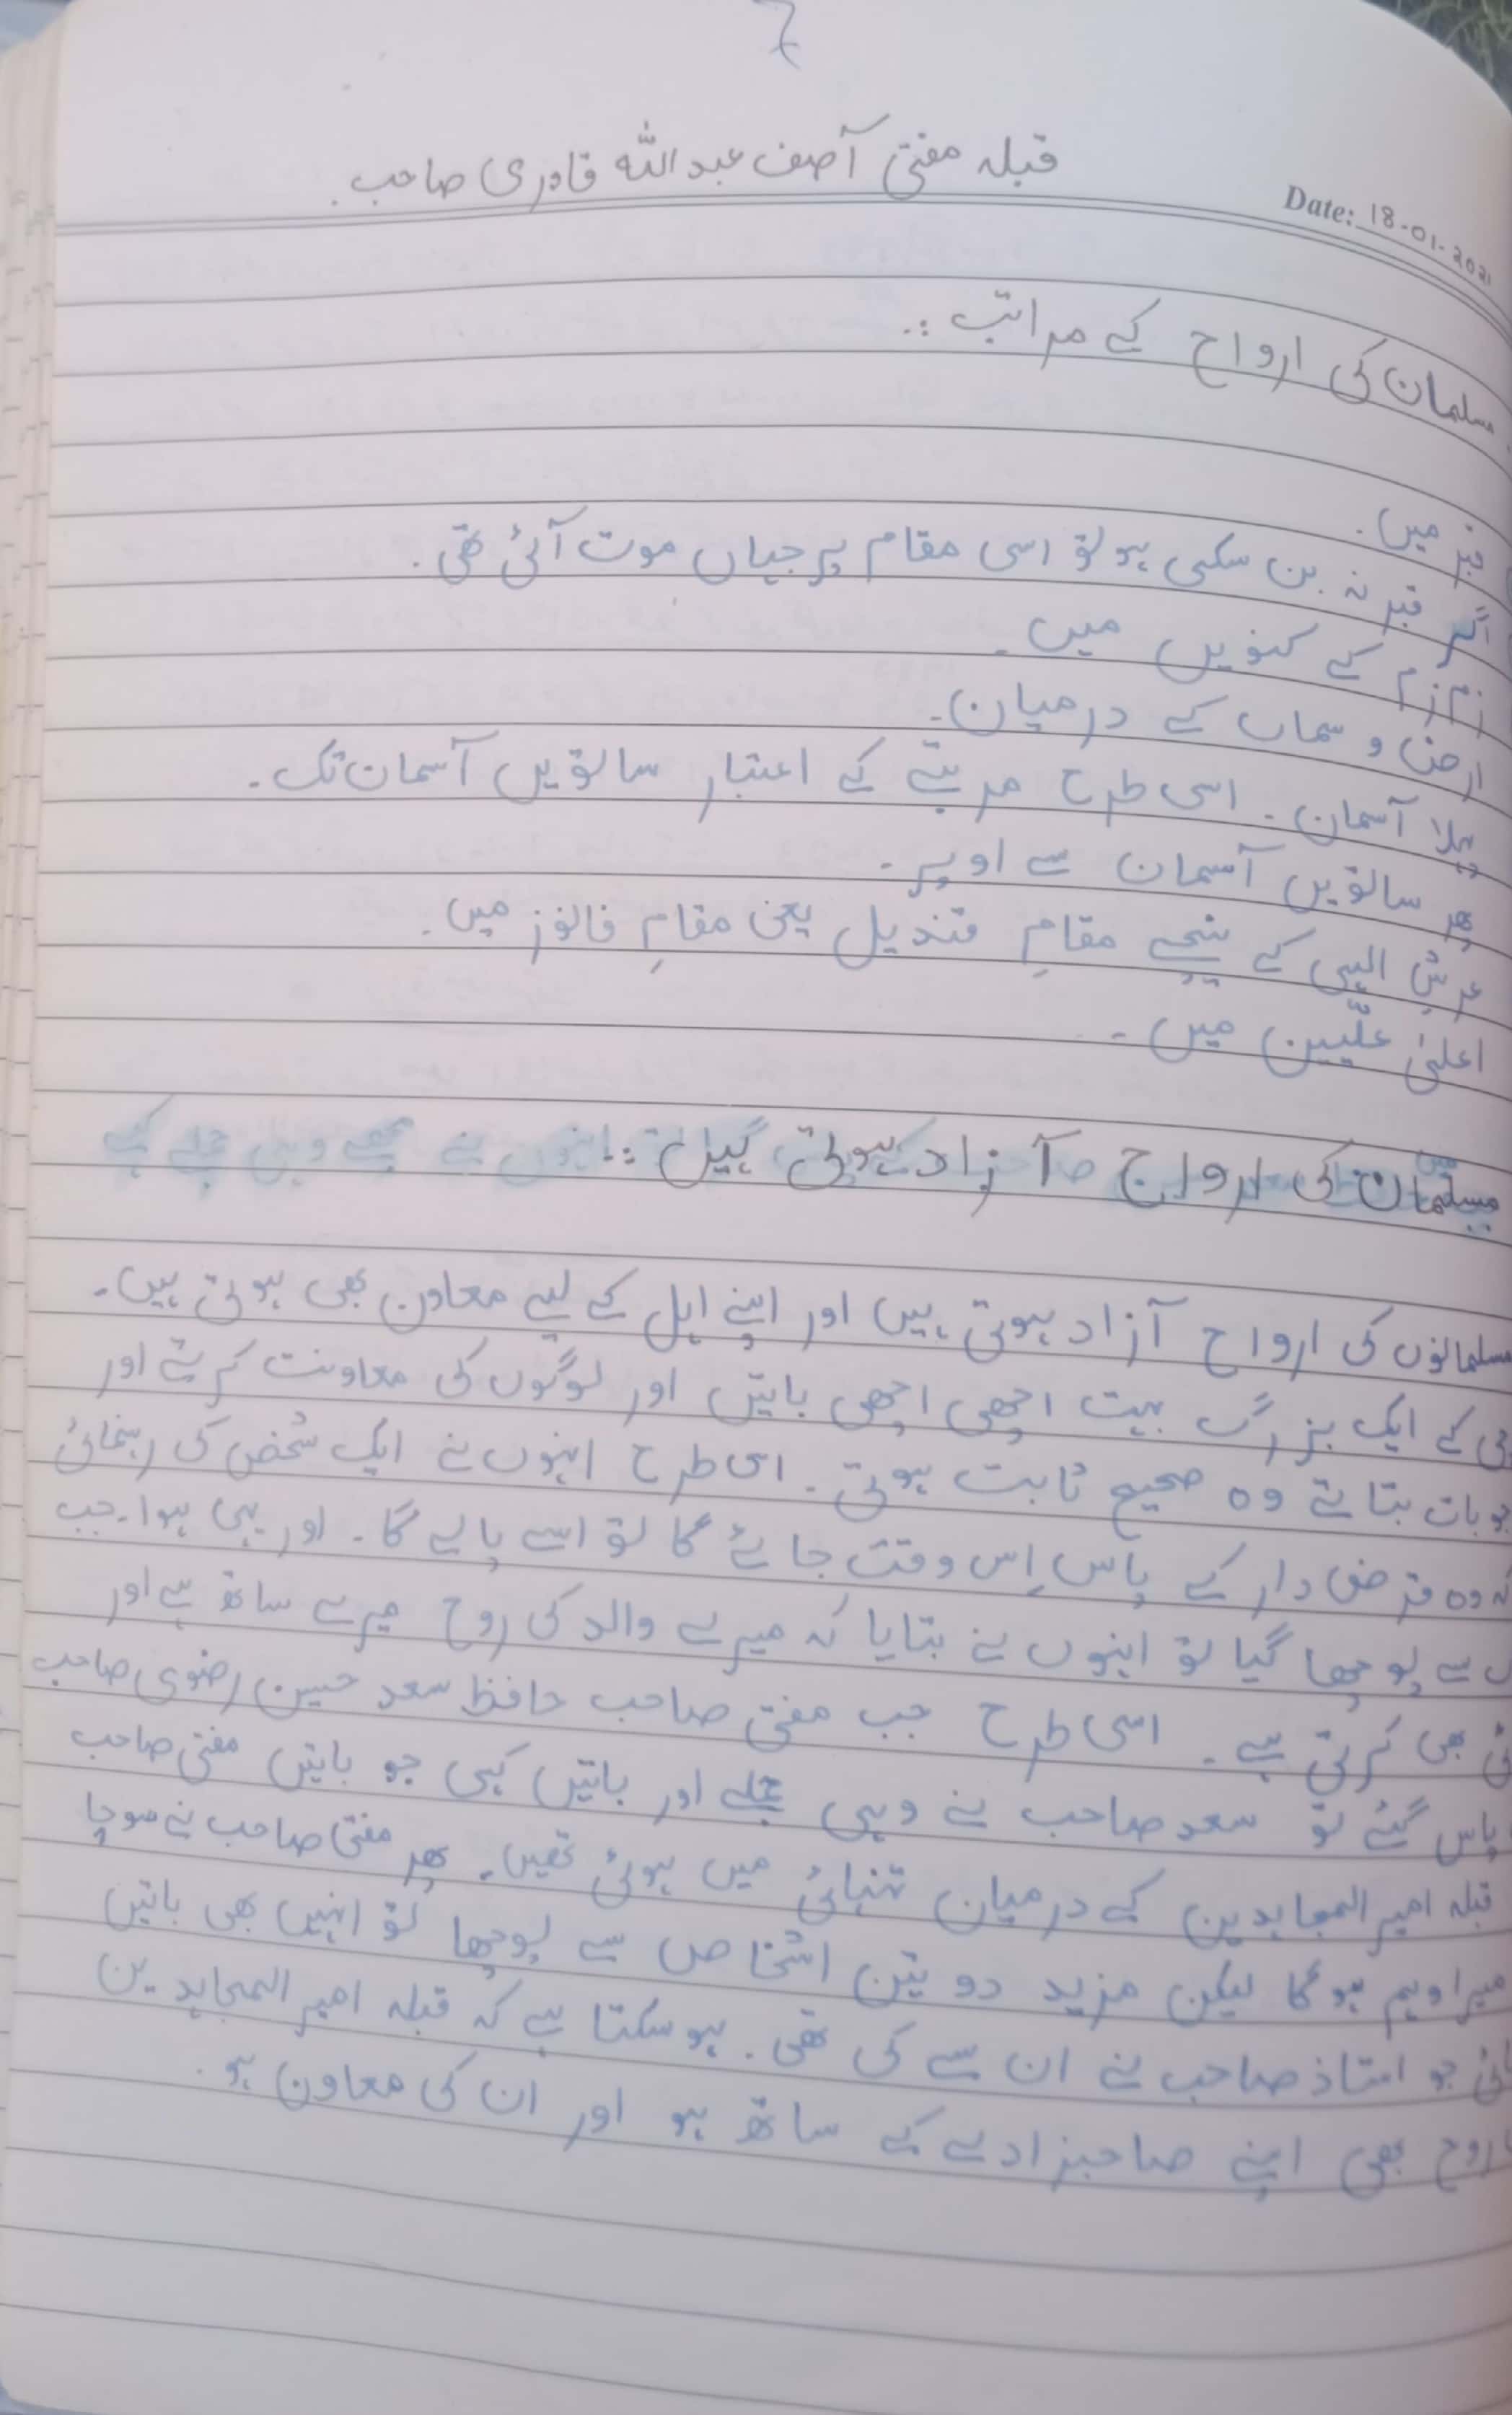 7
قبلہ مفتی آصف عبداللہ قادری صاحب
Date: 18-01-2021
مسلمان کی ارواح کے مراتب :.
قبر میں.
اگر قبر نہ بن سکی ہو تو اسی مقام پر جہاں موت آئی تھی.
زم زم کے کنویں میں۔
ارض و سماں کے درمیان۔
پہلا آسمان. اسی طرح مرتبے کے اعتبار ساتویں آسمان تک۔
پھر ساتویں آسمان سے اوپر۔
عرشِ الہی کے نیچے مقامِ قندیل یعنی مقامِ فانوز میں.
اعلیٰ علّیین میں۔
مسلمان کی ارواح آزاد ہوتی ہیں :.
مسلمانوں کی ارواح آزاد ہوتی ہیں اور اپنے اہل کے لیے معاون بھی ہوتی ہیں۔
کے ایک بزرگ بہت اچھی اچھی باتیں اور لوگوں کی معاونت کرتے اور
جو بات بتاتے وہ صحیح ثابت ہوتی. اسی طرح انہوں نے ایک شخص کی رہنمائی
کہ وہ قرض دار کے پاس اِس وقت جائے گا تو اسے پالے گا. اور یہی ہوا. جب
سے پوچھا گیا تو انہوں نے بتایا کہ میرے والد کی روح میرے ساتھ ہے اور
بھی کرتی ہے. اسی طرح جب مفتی صاحب حافظ سعد حسین رضوی صاحب
پاس گئے تو سعد صاحب نے وہی جملے اور باتیں کہی جو باتیں مفتی صاحب
قبلہ امیر المجاہدین کے درمیان تنہائی میں ہوئی تھیں. پھر مفتی صاحب نے سوچا
میرا وہم ہوگا لیکن مزید دو تین اشخاص سے پوچھا تو انہیں بھی باتیں
جو استاذ صاحب نے ان سے کی تھی. ہو سکتا ہے کہ قبلہ امیر المجاہدین
روح بھی اپنے صاحبزادے کے ساتھ ہو اور ان کی معاون ہو.